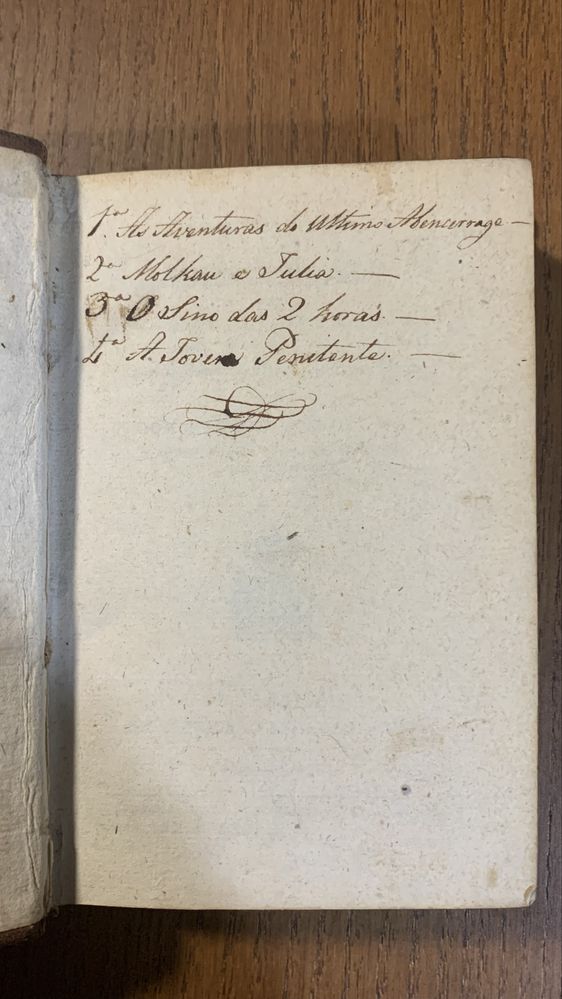 1.ª As Aventuras do Ultimo Abencerrage —
2.ª Molkau e Julia. —
3.ª O Sino das 2 horas. —
4.ª A Joven Penitente. —